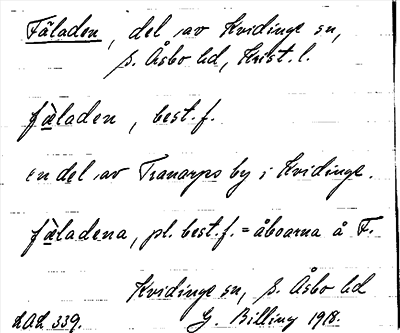 Fäladen, del av Kvidinge sn,
s. Åsbo hd, Krist. l.
fäladen, best. f.
en del av Tranarps by i Kvidinge.
fäladena, pl. best. f. = åboarna å F.
Kvidinge sn, s. Åsbo hd
LAL 339. G. Billing 1918.